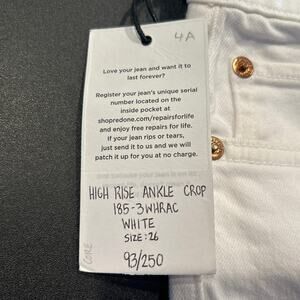 4A
Love your jean and want it to
last forever?
Register your jean's unique serial
number located on the
inside pocket at
shopredone.com/repairsforlife
and enjoy free repairs for life.
If your jean rips or tears,
just send it to us and we will
patch it up for you at no charge.
HIGH RISE ANKLE CROP
185-3WHRAC
WHITE
SIZE: 26
93/250
CORE